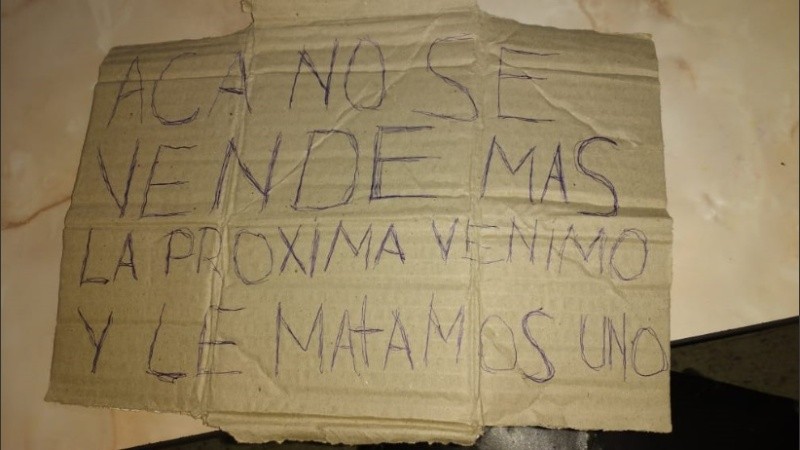 ACA NO SE
VENDE MAS
LA PROXIMA VENIMO
Y LE MATAMOS UNO